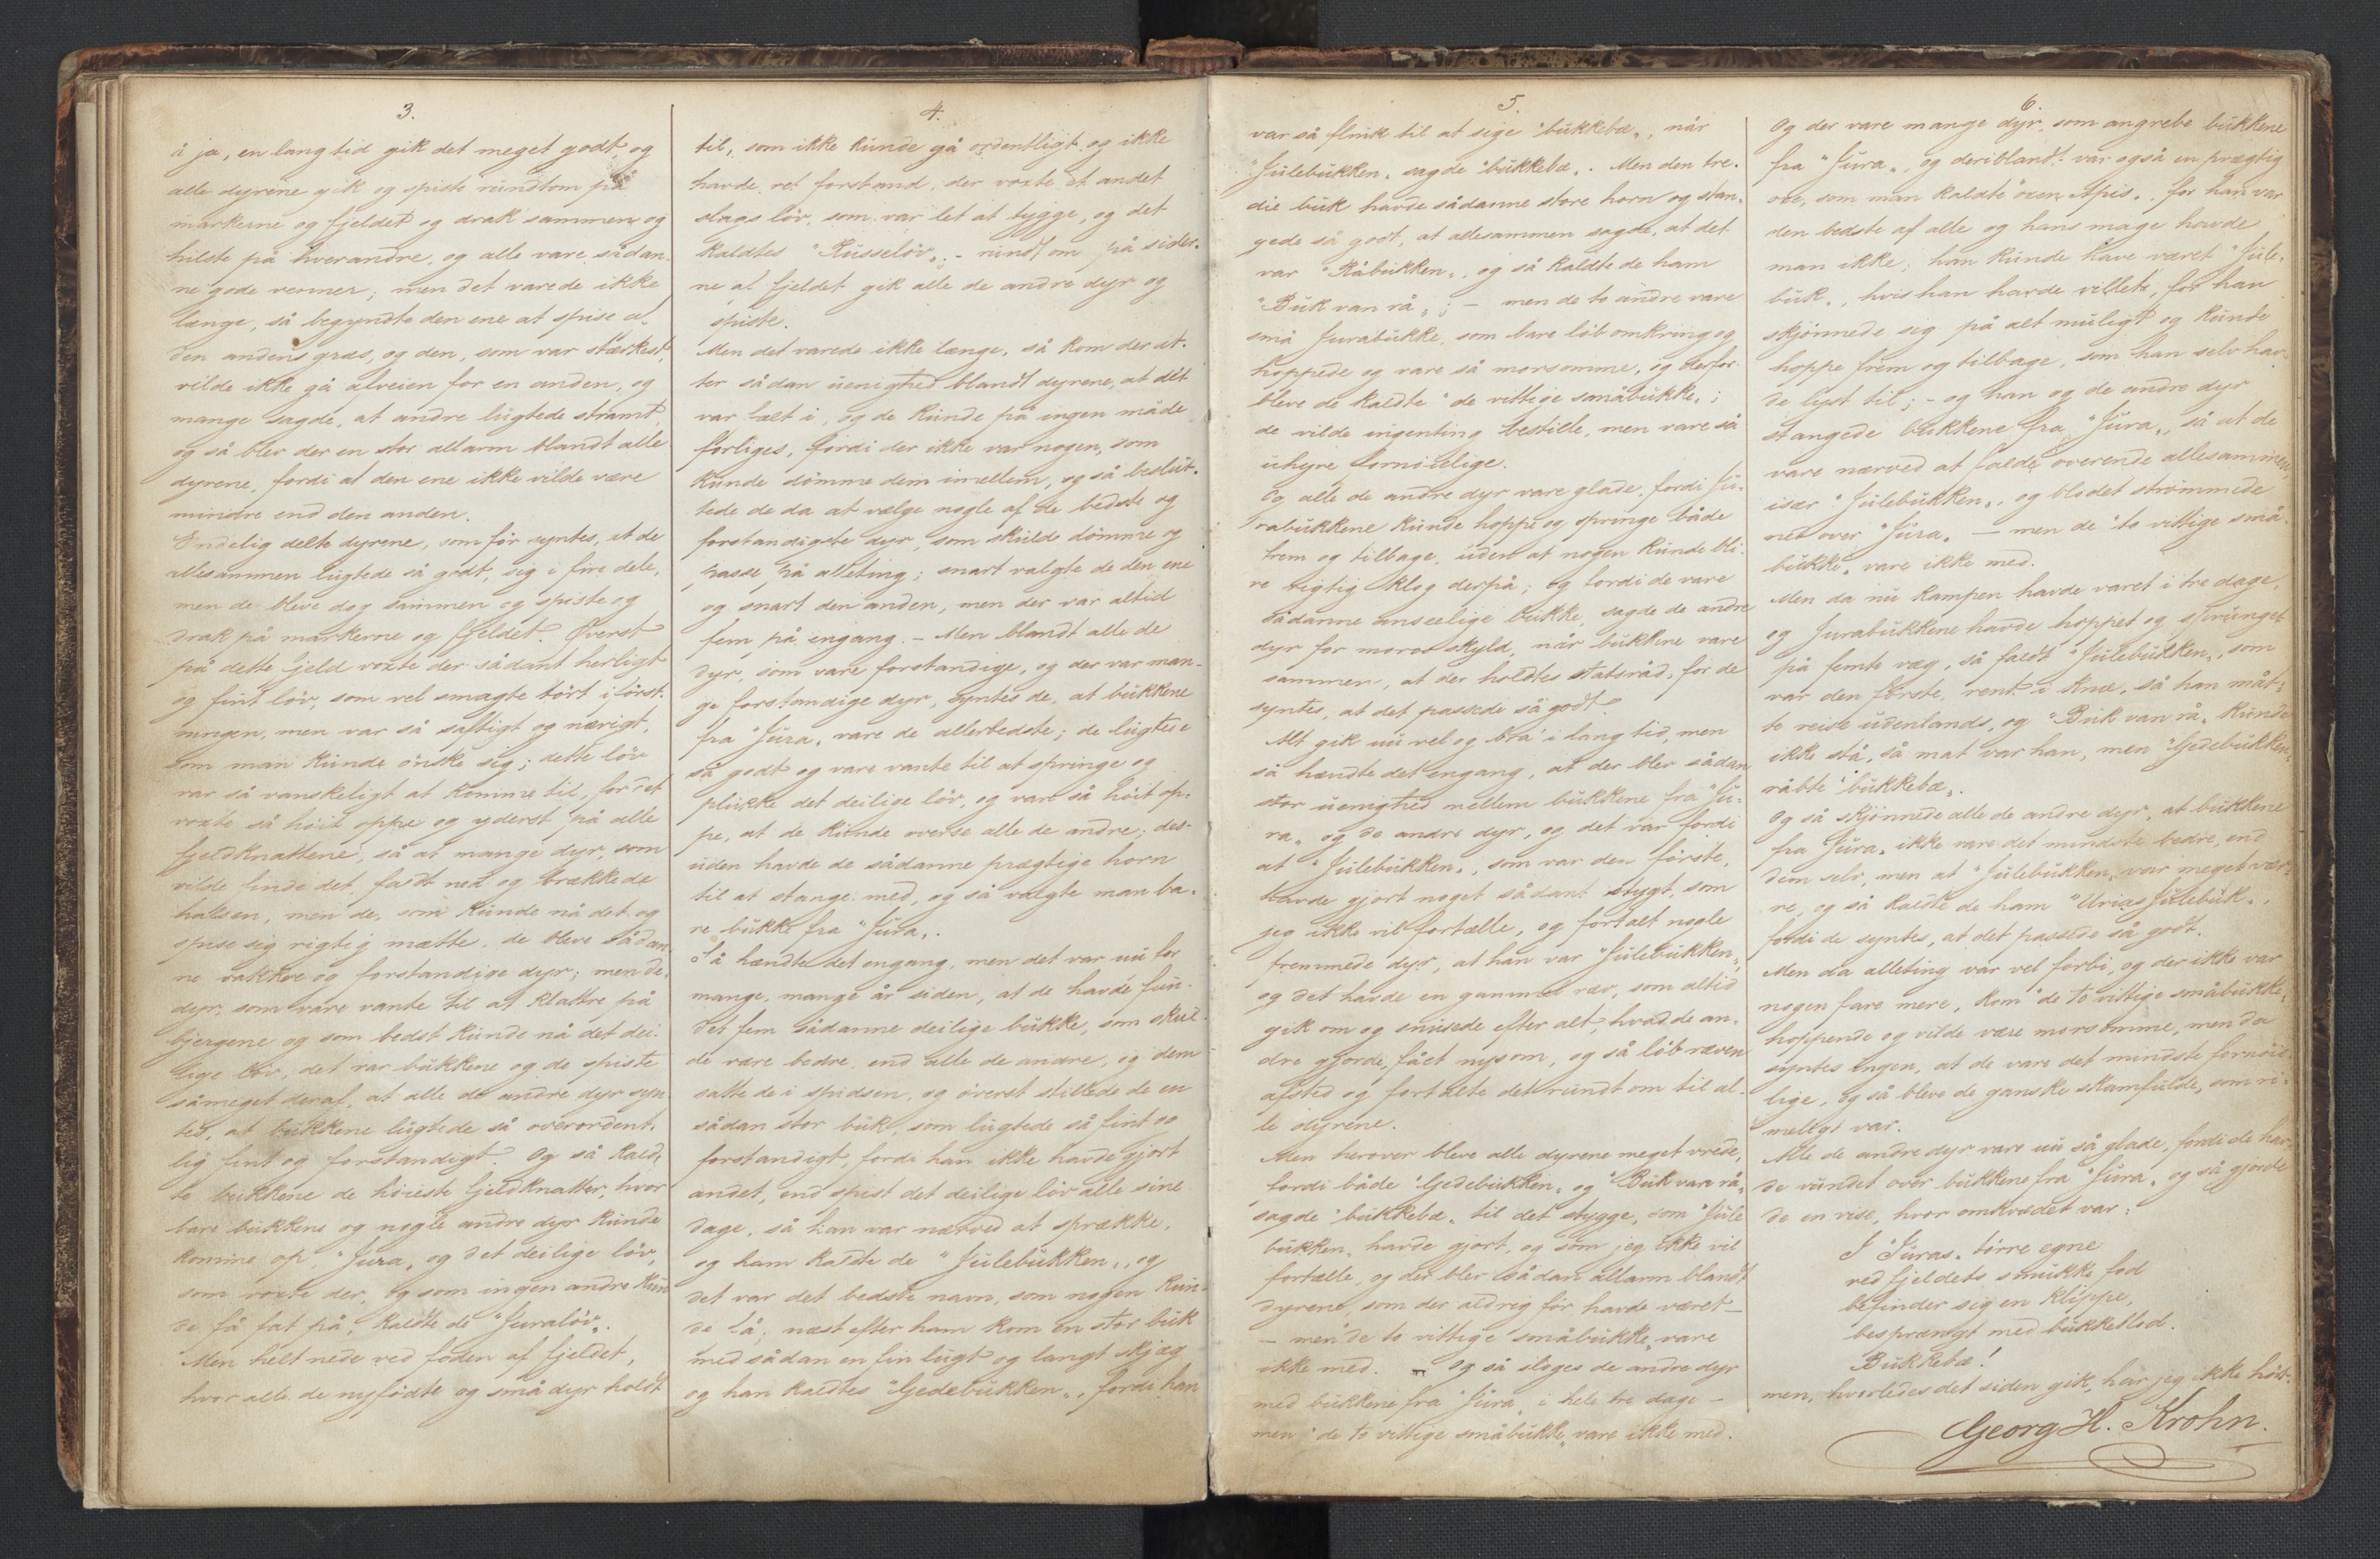 3.
å ja, en lang tid gik det meget godt, og
alle dyrene gik og spiste rundtom på
markerne og fjeldet og drak sammen og
hilste på hverandre, og alle vare sådan-
ne gode venner; men det varede ikke
længe, så begyndte den ene at spise af
den andens græs, og den, som var stærkest,
vilde ikke gå afveien for en anden, og
mange sagde, at andre lugtede stramt,
og så blev der en stor allarm blandt alle
dyrene, fordi at den ene ikke vilde være
mindre end den anden.
Endelig delte dyrene, som før syntes, at de
allesammen lugtede så godt, sig i fire dele,
men de bleve dog sammen og spiste og
drak på markerne og fjeldet. Øverst
på dette fjeld voxte der sådant herligt
og fint løv, som vel smagte tørt i først-
ningen, men var så saftigt og nærigt,
som man kunde ønske sig; dette løv
var så vanskeligt at komme til, for det
voxte så høit oppe og yderst på alle
fjeldknattene, så at mange dyr, som
vilde finde det, faldt ned og brækkede
halsen, men de, som kunde nå det og
spise sig rigtig mætte, de bleve sådan-
ne vakkre og forstandige dyr; men de
dyr, som vare vante til at klattre på
bjergene og som bedst kunde nå det dei-
lige løv, det var bukkene og de spiste
såmeget deraf, at alle de andre dyr syn-
tes, at bukkene lugtede så overordent-
lig fint og forstandigt. Og så kald-
te bukkene de høieste fjeldknatter, hvor
bare bukkene og nogle andre dyr kunde
komme op, "Jura" og det deilige løv,
som voxte der, og som ingen andre kun-
de få fat på, kaldte de "Juraløv".
Men helt nede ved foden af fjeldet,
hvor alle de nyfødte og små dyr holdt
4.
til, som ikke kunde gå ordentligt og ikke
havde ret forstand, der voxte et andet
slags løv, som var let at tygge, og det
kaldtes "Russeløv"; - rundt om på sider-
ne af fjeldet gik alle de andre dyr og
spiste.
Men det varede ikke længe, så kom der at-
ter sådan uenighed blandt dyrene, at det
var fælt i, og de kunde på ingen måde
forliges, fordi der ikke var nogen, som
kunde dømme dem imellem, og så beslut-
tede de da at vælge nogle af de bedste og
forstandigste dyr, som skulde dømme og
passe på alleting; snart valgte de den ene
og snart den anden, men der var altid
fem på engang. - Men blandt alle de
dyr, som vare forstandige, og der var man-
ge forstandige dyr, syntes de, at bukkene
fra "Jura" vare de allerbedste; de lugtede
så godt og vare vante til at springe og
plukke det deilige løv, og var så høit op-
pe, at de kunde overse alle de andre; des-
uden havde de sådanne prægtige horn
til at stange med, og så valgte man ba-
re bukke fra "Jura".
Så hændte det engang, men det var nu for
mange, mange år siden, at de havde fun-
det fem sådanne deilige bukke, som skul-
de være bedre, end alle de andre, og dem
satte de i spidsen, og øverst stillede de en
sådan stor buk, som lugtede så fint og
forstandigt, fordi han ikke havde gjort
andet, end spist det deilige løv alle sine
dage, så han var nærved at sprække,
og ham kaldte de "Julebukken", og
det var det bedste navn, som nogen kun-
de få; næst efter ham kom en stor buk
med sådan en fin lugt og langt skjæg
og han kaldtes "Gedebukken", fordi han
5.
var så flink til at sige "bukkebæ", når
"Julebukken" sagde "bukkebæ". Men den tre-
die buk havde sådanne store horn og stan-
gede så godt, at allesammen sagde, at det
var "Råbukken", og så kaldte de ham
"Buk van rå"; - men de to andre vare
små Jurabukke, som bare løb omkring og
hoppede og vare så morsomme, og derfor
bleve de kaldte "de vittige småbukke";
de vilde ingenting bestille, men vare så
uhyre fornøielige.
Og alle de andre dyr vare glade, fordi Ju-
rabukkene kunde hoppe og springe både
frem og tilbage, uden at nogen kunde bli-
ve rigtig klog derpå; og fordi de vare
sådanne anseelige bukke, sagde de andre
dyr for moros skyld, når bukkene vare
sammen, at der holdtes statsråd, for de
syntes, at det passede så godt.
Alt gik nu vel og bra i lang tid, men
så hændte det engang, at der blev sådan
stor uenighed mellem bukkene fra "Ju-
ra" og de andre dyr, og det var fordi
at "Julebukken", som var den første,
havde gjort noget sådant stygt, som
jeg ikke vil fortælle, og fortalt nogle
fremmede dyr, at han var "Julebukken",
og det havde en gammel ræv, som altid
gik om og snusede efter alt, hvad de an-
dre gjorde, fået nys om, og så løb ræven
afsted og fortalte det rundt om til al-
le dyrene.
Men herover bleve alle dyrene meget vrede,
fordi både "Gedebukken" og "Buk van rå"
sagde "bukkebæ" til det stygge, som "Jule
bukken" havde gjort, og som jeg ikke vil
fortælle, og der blev sådan allarm blandt
dyrene, som der aldrig før havde været -
- men "de to vittige småbukke" vare
ikke med. - Og så sloges de andre dyr
med bukkene fra "Jura" i hele tre dage -
men "de to vittige småbukke" vare ikke med.
6.
Og der vare mange dyr, som angrebe bukkene
fra "Jura", og deriblandt var også en prægtig
oxe, som man kaldte "oxen Apis", for han var
den bedste af alle og hans mage havde
man ikke; han kunde have været "Jule-
buk", hvis han havde villet, for han
skjønnede sig på alt muligt og kunde
hoppe frem og tilbage, som han selv hav-
de lyst til; - og han og de andre dyr
stangede bukkene fra "Jura", så at de
vare nærved at falde overende allesammen,
især "Julebukken", og blodet strømmede
ned over "Jura" - men de "to vittige små-
bukke" vare ikke med.
Men da nu kampen havde varet i tre dage,
og Jurabukkene havde hoppet og sprunget
på femte væg, så faldt "Julebukken", som
var den første, rent i knæ, så han måt-
te reise udenlands, og "Buk van rå" kunde
ikke stå, så mat var han, men "Gedebukken"
råbte "bukkebæ".
Og så skjønnede alle de andre dyr, at bukkene
fra "Jura" ikke vare det mindste bedre, end
dem selv, men at "Julebukken" var meget vær-
re, og så kaldte de ham "Urias Julebuk",
fordi de syntes, at det passede så godt.
Men da alleting var vel forbi, og der ikke var
nogen fare mere, kom "de to vittige småbukke"
hoppende og vilde være morsomme, men da
syntes ingen, at de vare det mindste fornøie-
lige, og så bleve de ganske skamfulde, som ri-
meligt var.
Alle de andre dyr vare nu så glade, fordi de hav-
de vundet over bukkene fra "Jura" og så gjorde
de en vise, hvor omkvædet var:
I "Juras" tørre egne
ved fjeldets smukke fod
befinder sig en klippe,
besprængt med bukkeblod.
Bukkebæ!
men, hvorledes det siden gik, har jeg ikke hørt.
Georg H. Krohn.